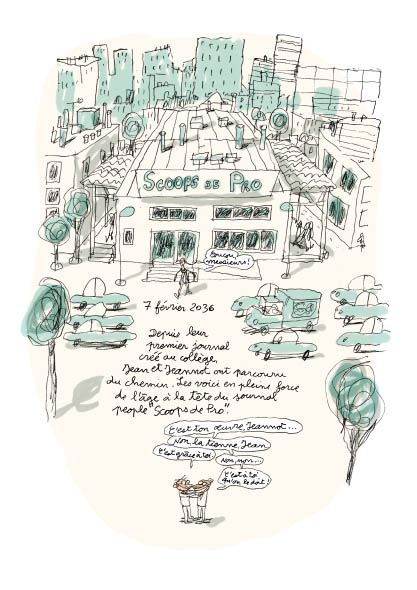 SCOOPS DE PRO
Bonjour,
messieurs!
7 février 2036
Depuis leur
premier journal
créé au collège,
Jean et Jeannot ont parcouru
du chemin. Les voici en pleine force
de l'âge à la tête du journal
people "Scoops de Pro".
C'est ton œuvre, Jeannot...
Non, la tienne, Jean
C'est grâce à toi.
Non, non...
C'est à toi
qu'on le doit!